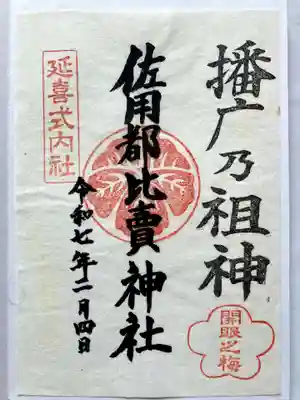 播广乃祖神
延喜式内社
佐用都比賣神社
令和七年二月四日
開眼之梅